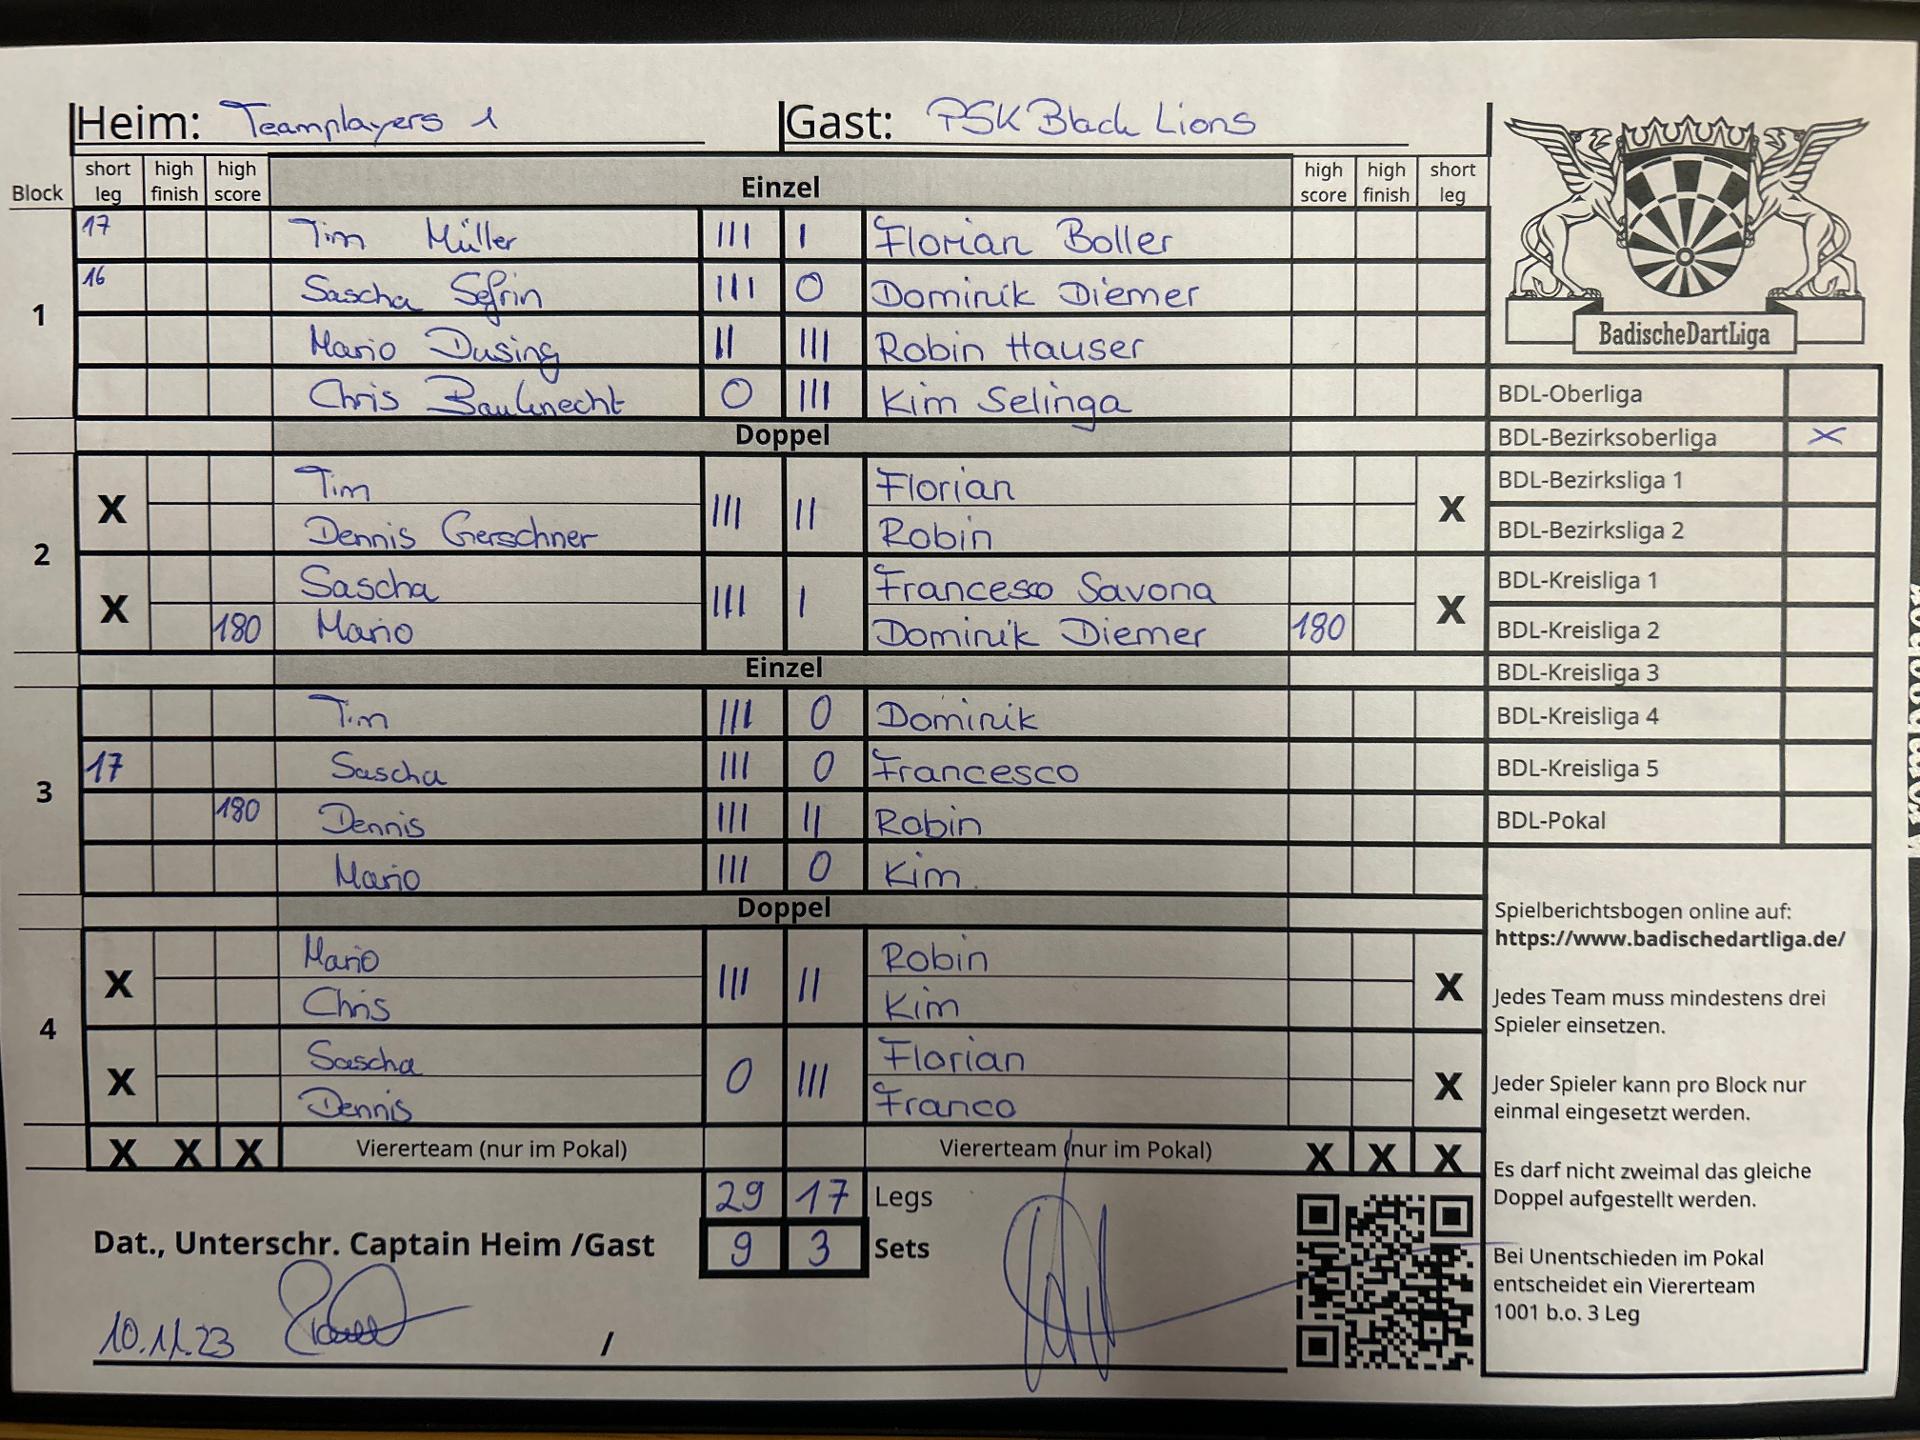 Heim: Teamplayers 1 Gast: PSK Black Lions
Block short leg high finish high score Einzel high score high finish short leg
1
17 Tim Müller III I Florian Boller
16 Sascha Sefrin III 0 Dominik Diemer
Mario Dusing II III Robin Hauser
Chris Bauknecht 0 III Kim Selinga
Doppel
2
X Tim III II Florian X
Dennis Gerschner Robin
X Sascha III I Francesco Savona X
180 Mario Dominik Diemer 180
Einzel
3
Tim III 0 Dominik
17 Sascha III 0 Francesco
180 Dennis III II Robin
Mario III 0 Kim
Doppel
4
X Mario III II Robin X
Chris Kim
X Sascha 0 III Florian X
Dennis Franco
X X X Viererteam (nur im Pokal) Viererteam (nur im Pokal) X X X
29 17 Legs
Dat., Unterschr. Captain Heim /Gast 9 3 Sets
10.11.23 /
BadischeDartLiga
BDL-Oberliga
BDL-Bezirksoberliga X
BDL-Bezirksliga 1
BDL-Bezirksliga 2
BDL-Kreisliga 1
BDL-Kreisliga 2
BDL-Kreisliga 3
BDL-Kreisliga 4
BDL-Kreisliga 5
BDL-Pokal
Spielberichtsbogen online auf:
https://www.badischedartliga.de/
Jedes Team muss mindestens drei
Spieler einsetzen.
Jeder Spieler kann pro Block nur
einmal eingesetzt werden.
Es darf nicht zweimal das gleiche
Doppel aufgestellt werden.
Bei Unentschieden im Pokal
entscheidet ein Viererteam
1001 b.o. 3 Leg